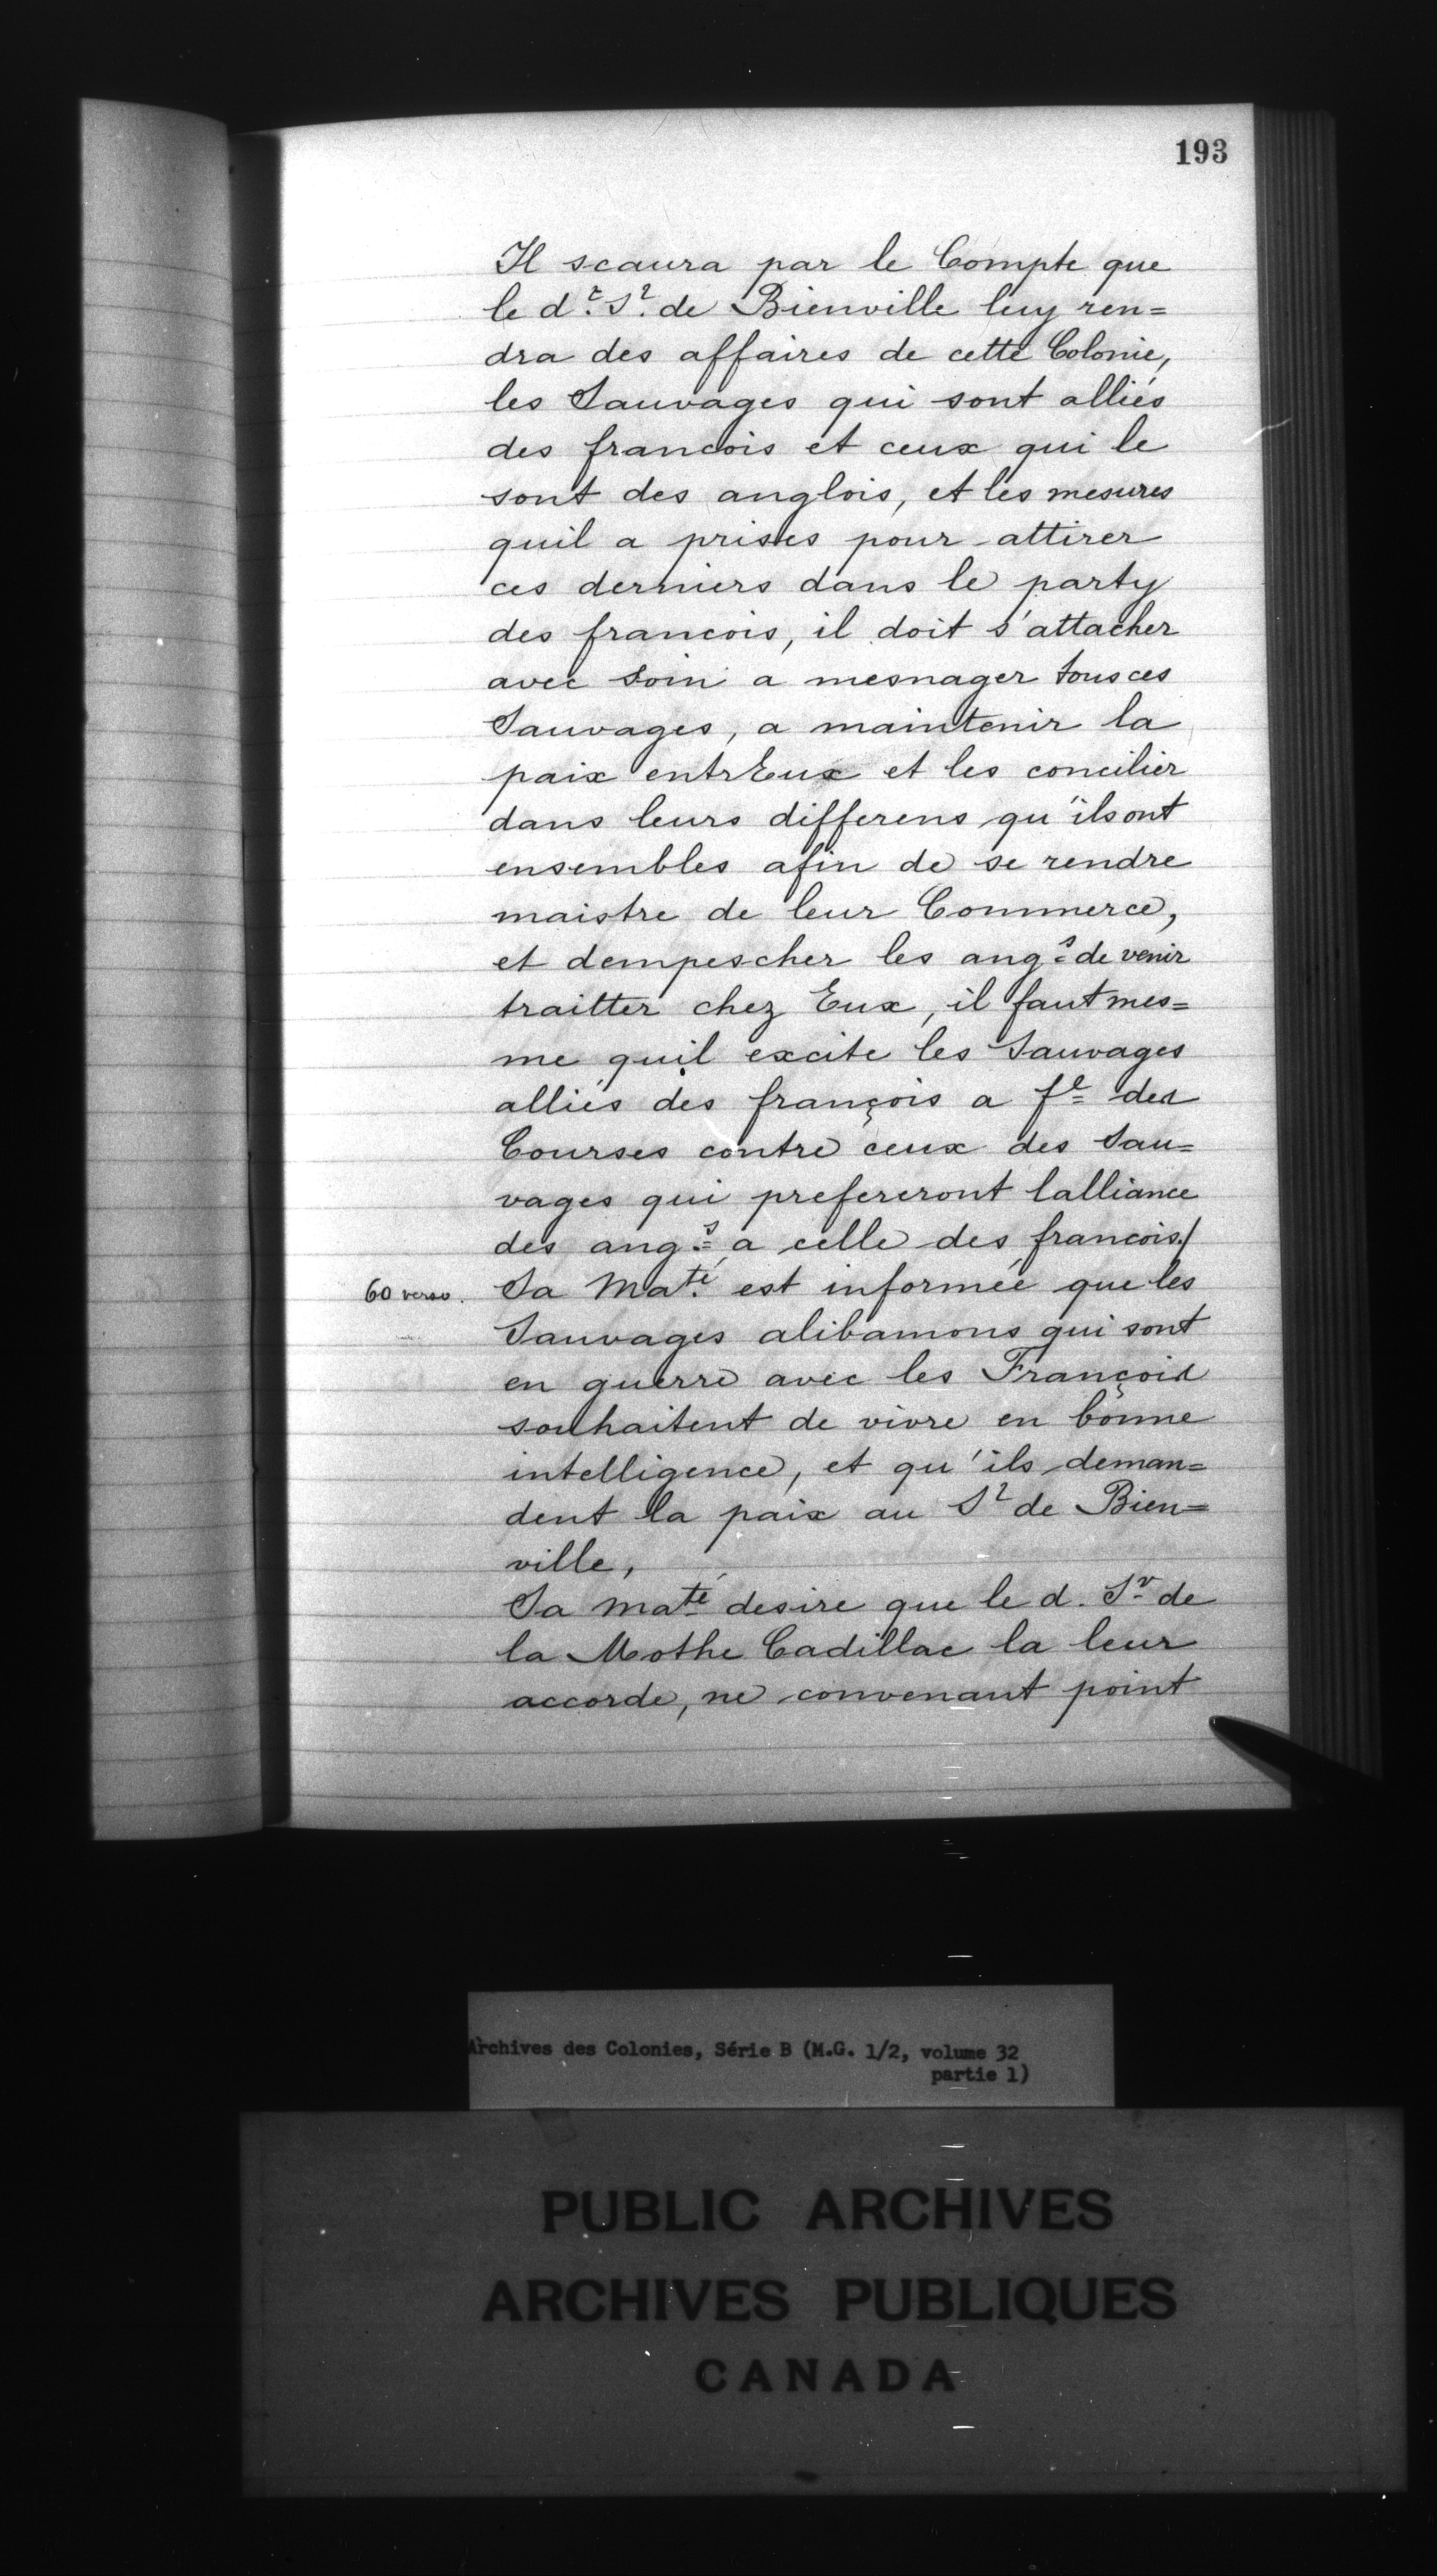 193
Il scaura par le Compte que
le d.t Sr. de Bienville luy ren=
dra des affaires de cette Colonie,
les Sauvages qui sont alliés
des francois et ceux qui le
sont des anglois, et les mesures
quil a prises pour attirer
ces derniers dans le party
des francois, il doit s'attacher
avec soin a mesnager tous ces
Sauvages, a maintenir la
paix entrEux et les concilier
dans leurs differens qu'ils ont
ensembles afin de se rendre
maistre de leur Commerce,
et dempescher les ang.s de venir
traitter chez Eux, il faut mes=
me quil excite les Sauvages
alliés des françois a fe des
Courses contre ceux des Sau=
vages qui prefereront lalliance
des ang.s a celle des francois./
60 verso. Sa Maté. est informée que les
Sauvages alibamons qui sont
en guerre avec les François
souhaitent de vivre en bonne
intelligence, et qu'ils deman=
dent la paix au Sr de Bien=
ville,
Sa maté desire que le d. Sr de
la Mothe Cadillac la leur
accorde, ne convenant point
Archives des Colonies, Série B (M.G. 1/2, volume 32
partie 1)
PUBLIC ARCHIVES
ARCHIVES PUBLIQUES
CANADA